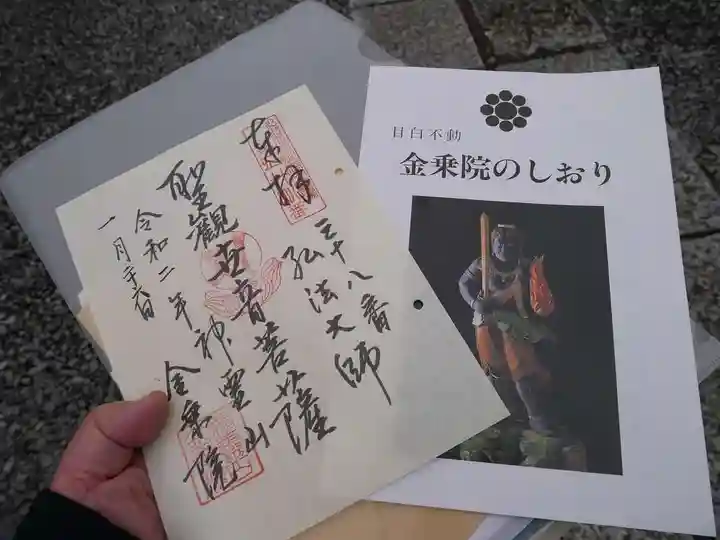 奉拝
三十八番
弘法大師
聖観世音菩薩
神霊山
金乗院
令和二年
一月廿六日
目白不動
金乗院のしおり